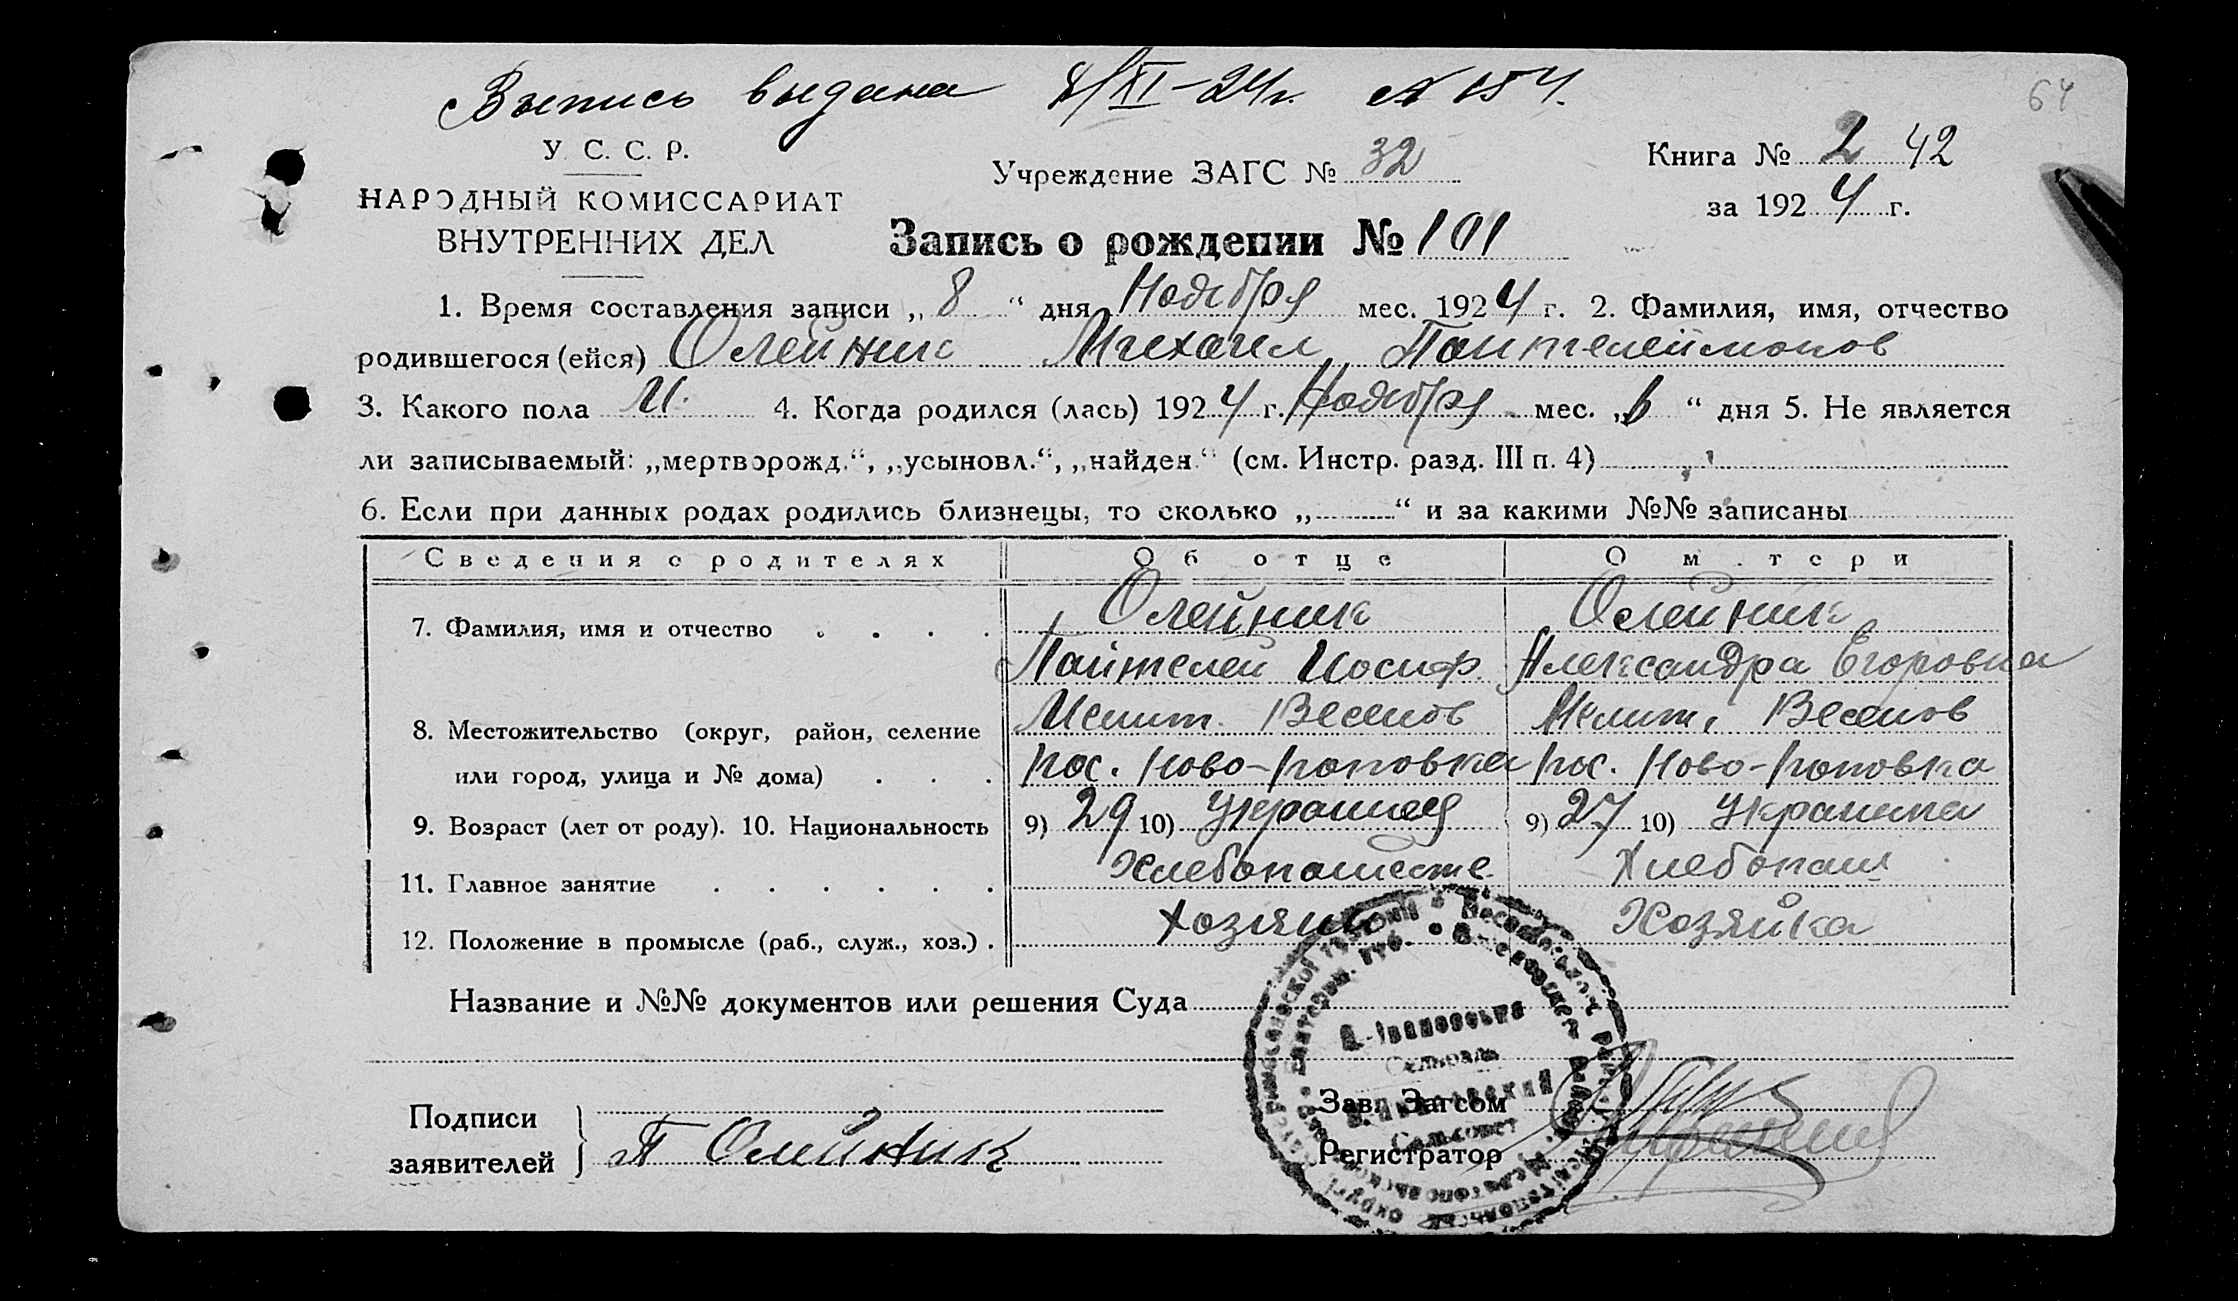 Выпись выдана 8/XI-24г. № 154.
64
У. С. С. Р.
НАРОДНЫЙ КОМИССАРИАТ
ВНУТРЕННИХ ДЕЛ
Учреждение ЗАГС № 32
Книга № 2 42
за 1924 г.
Запись о рождении № 101
1. Время составления записи „ 8 “ дня Ноября мес. 1924 г. 2. Фамилия, имя, отчество
родившегося (ейся) Олейник Михаил Пантелеймонов
3. Какого пола М. 4. Когда родился (лась) 1924 г. Ноября мес. „ “ дня 5. Не является
ли записываемый: „мертворожд.“, „усыновл.“, „найден.“ (см. Инстр. разд. III п. 4)
6. Если при данных родах родились близнецы, то сколько „ “ и за какими №№ записаны
Сведения о родителях Об отце О м.тери
7. Фамилия, имя и отчество Олейник Олейник
Пантелей Иосиф. Александра Егоровна
8. Местожительство (округ, район, селение Мелит. Веселов Мелит. Веселов
или город, улица и № дома) пос. Ново-поповка пос. Ново-поповка
9. Возраст (лет от роду). 10. Национальность 9) 29 10) 9) 27 10)
11. Главное занятие Хлебопашест. Хлебопаш
12. Положение в промысле (раб., служ., хоз.) Хозяин Хозяйка
Название и №№ документов или решения Суда
Подписи
заявителей
П Олейник
Зав. Загсом
Регистратор
Сельсовет